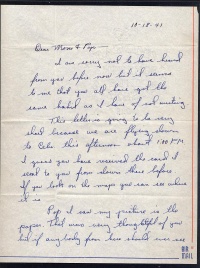 10-18-43
Dear Mom & Pop —
I am sorry not to have heard
from you before now but it seems
to me that you all have got the
same habit as I have of not writing
This letter is going to be very
short because we are flying down
to Cuba this afternoon about 1:00 P.M.
I guess you have received the card I
sent to you from down there before.
If you look on the map you can see where
it is
Pop I saw my picture in the
paper. That was very thoughtful of you
but if anybody from here should ever see
AIR
MAIL